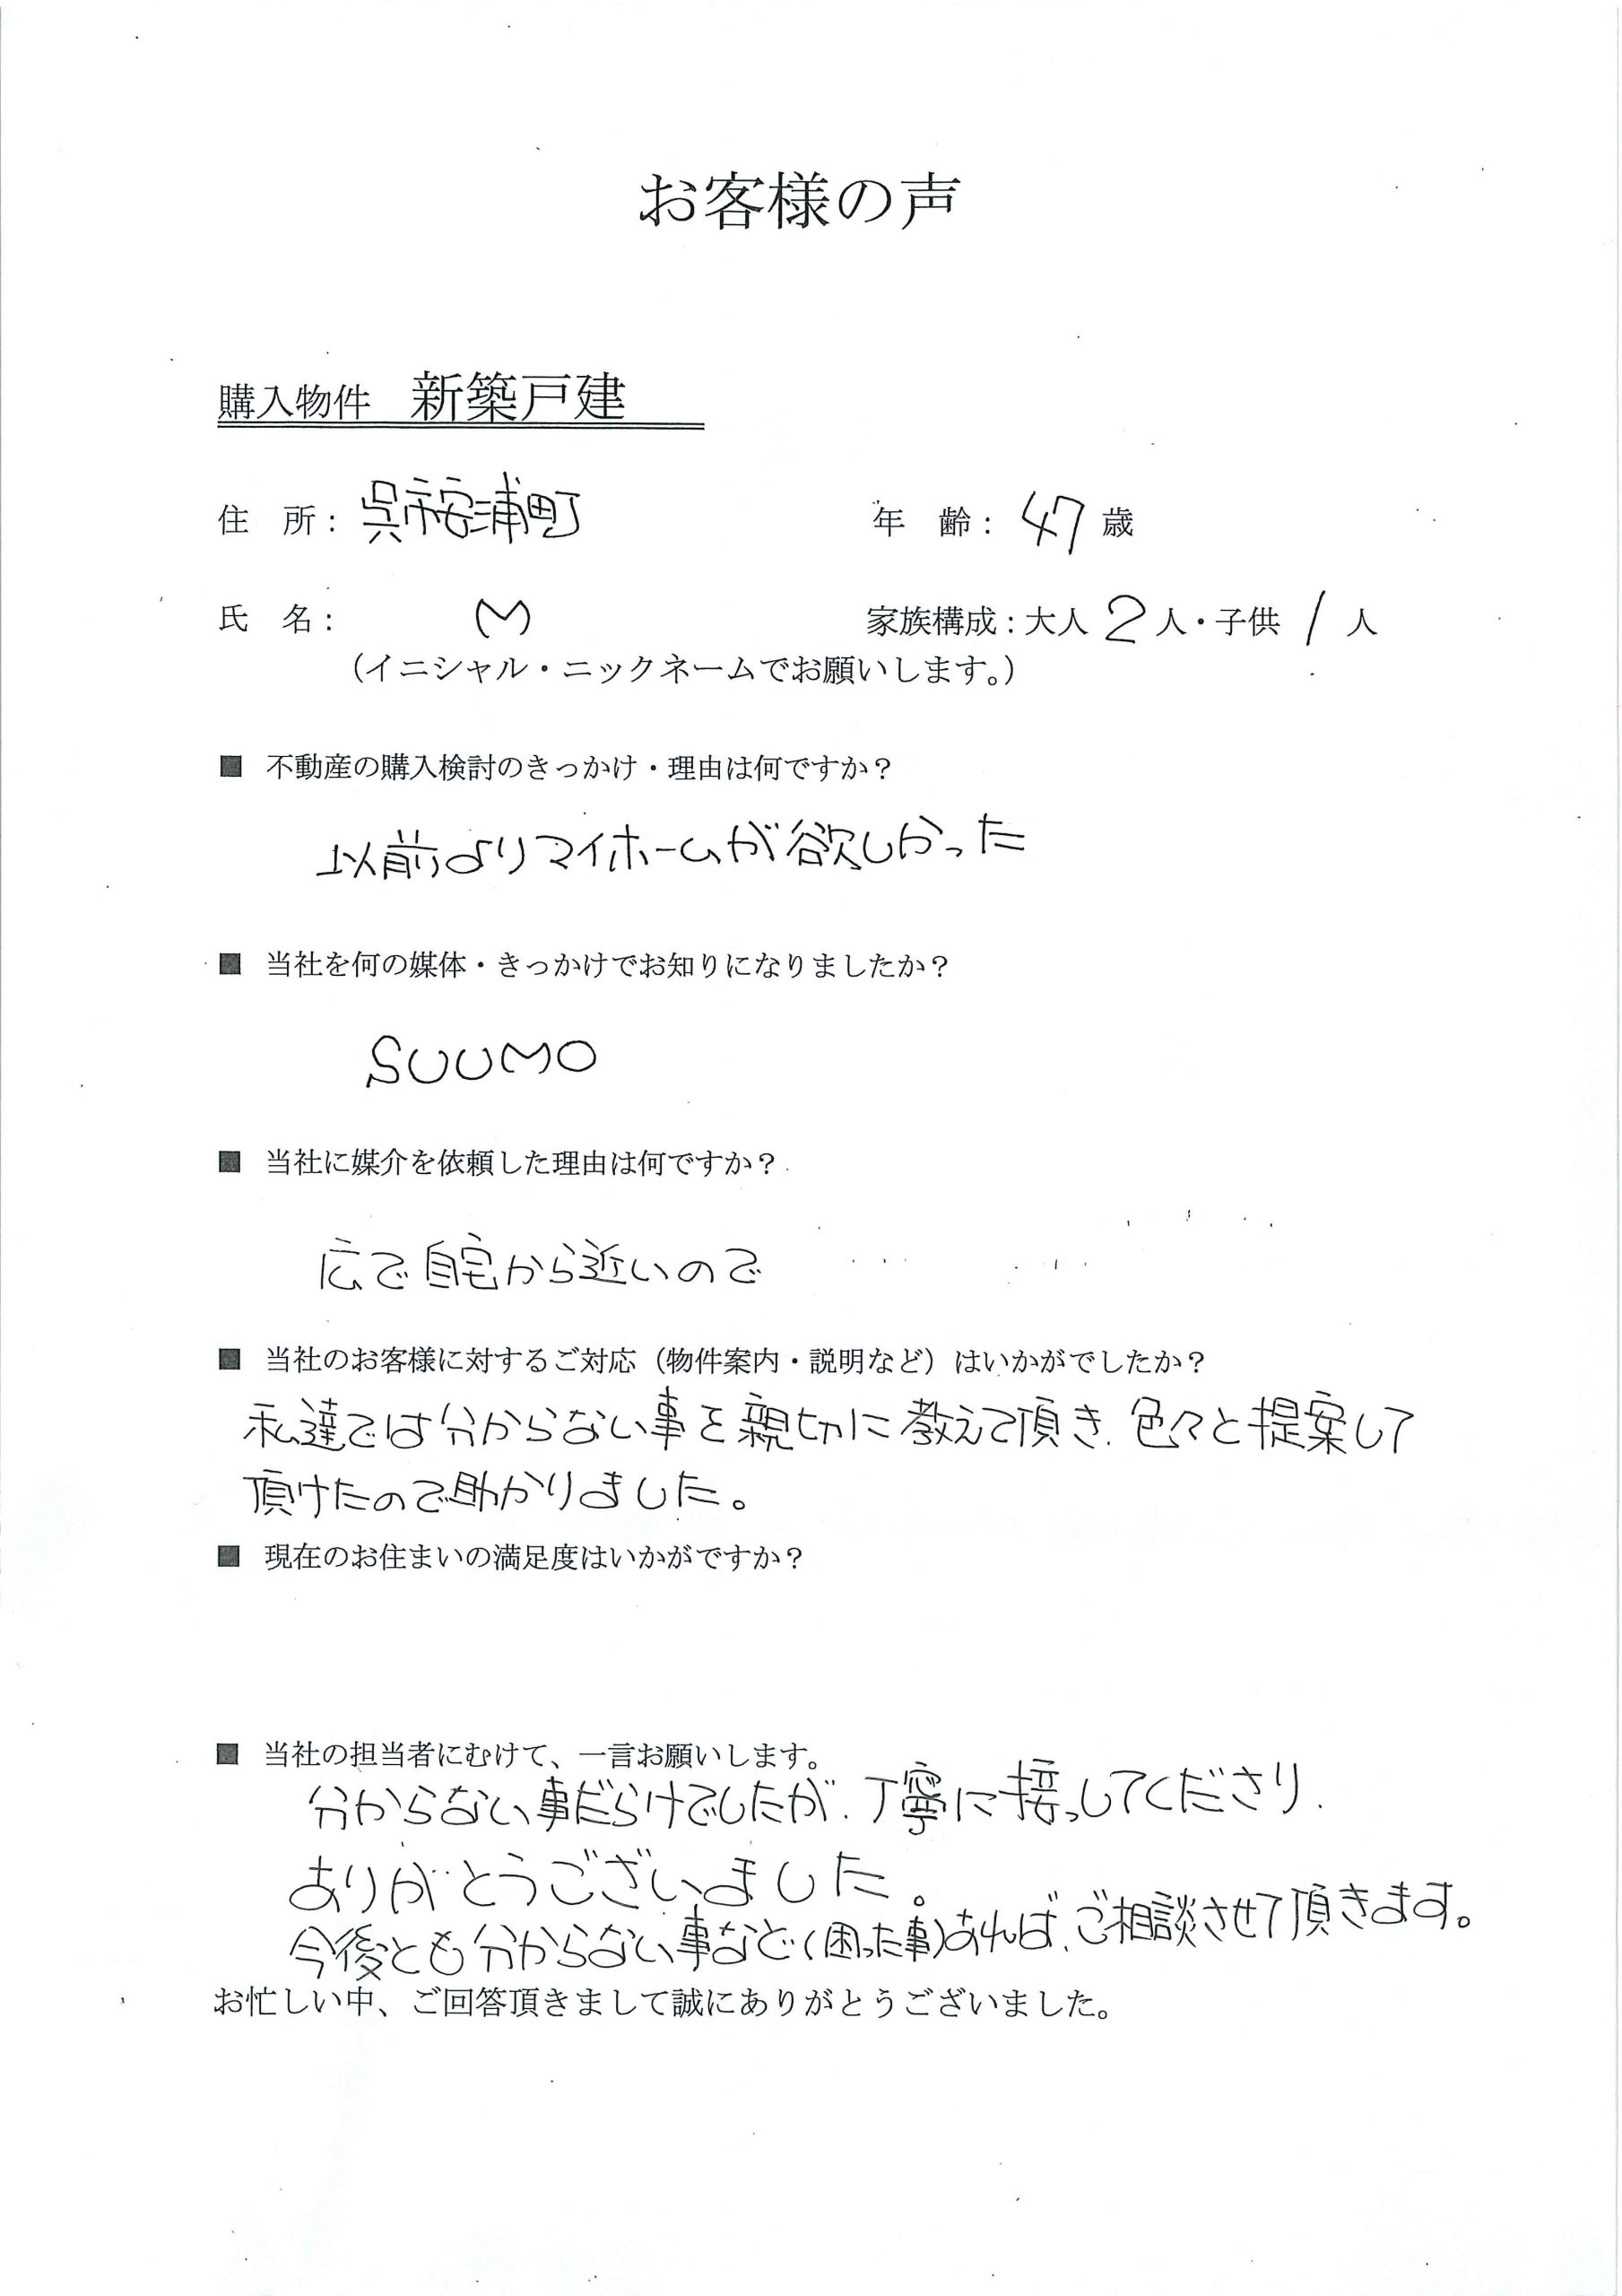 お客様の声
購入物件　新築戸建
住　所：呉市安浦町　年　齢：47歳
氏　名：M　家族構成：大人2人・子供1人
（イニシャル・ニックネームでお願いします。）
■　不動産の購入検討のきっかけ・理由は何ですか？
以前よりマイホームが欲しかった
■　当社を何の媒体・きっかけでお知りになりましたか？
SUUMO
■　当社に媒介を依頼した理由は何ですか？
広で自宅から近いので
■　当社のお客様に対するご対応（物件案内・説明など）はいかがでしたか？
私達では分からない事を親切に教えて頂き、色々と提案して
頂けたので助かりました。
■　現在のお住まいの満足度はいかがですか？
■　当社の担当者にむけて、一言お願いします。
分からない事だらけでしたが、丁寧に接っしてくださり、
ありがとうございました。
今後とも分からない事など（困った事）あれば、ご相談させて頂きます。
お忙しい中、ご回答頂きまして誠にありがとうございました。